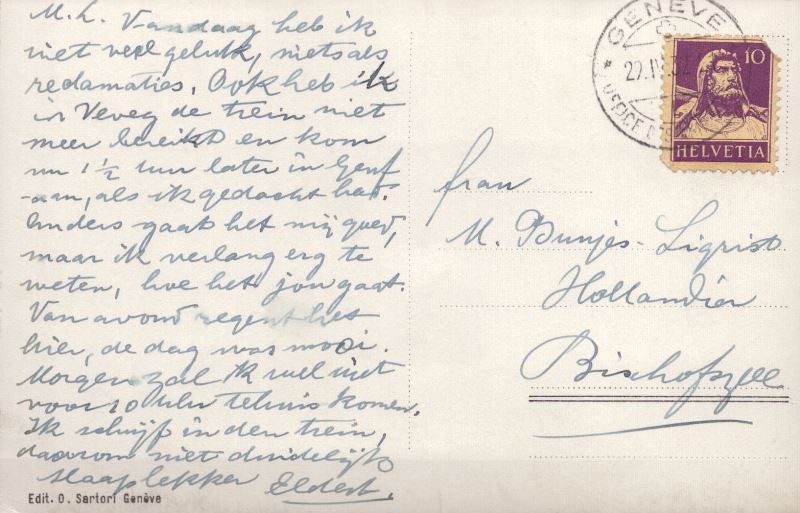 M. L. Vandaag heb ik
niet veel geluk, niets als
reclamaties. Ook heb ik
in Vevey de trein niet
meer bereikt en kom
nu 1½ uur later in Genf
aan, als ik gedacht had.
Anders gaat het mij goed,
maar ik verlang erg te
weten, hoe het jou gaat.
Van avond regent het
hier, de dag was mooi.
Morgen zal ik wel niet
voor 10 Uhr tehuis komen.
Ik schrijf in den trein,
daarom niet duidelijk
Slaap lekker Eldert.
Edit. O. Sartori Genève
GENÈVE
HELVETIA
10
Frau
M. Bunjes-Sigrist
Hollandia
Bischofszell